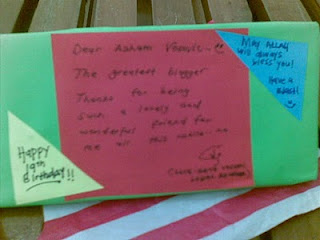 Dear
The greatest blogger
Thanks for being
such a lovely and
wonderful friend for
me all this while.
MAY ALLAH
will always
bless you!
Have a
blast!
Happy
19th
Birthday!!